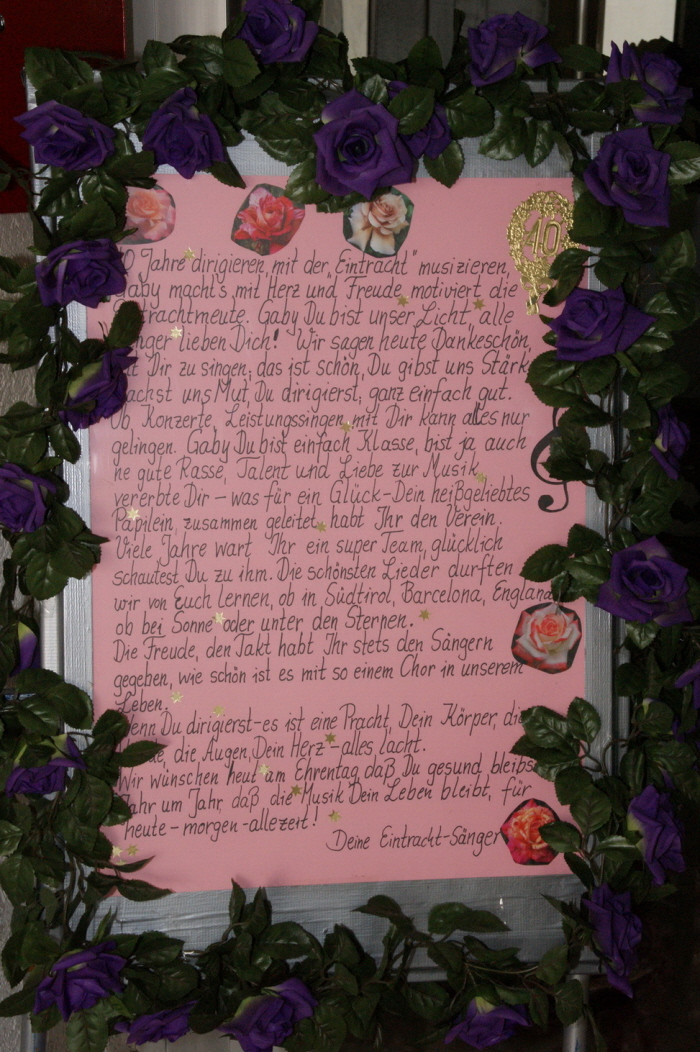 40
0 Jahre dirigieren, mit der „Eintracht" musizieren,
Gaby macht's mit Herz und Freude, motiviert die
trachtmeute. Gaby Du bist unser Licht, alle
nger lieben Dich! Wir sagen heute Dankeschön,
it Dir zu singen, das ist schön, Du gibst uns Stärk
achst uns Mut, Du dirigierst, ganz einfach gut.
Ob Konzerte, Leistungssingen, mit Dir kann alles nur
gelingen. Gaby Du bist einfach Klasse, bist ja auch
ne gute Rasse, Talent und Liebe zur Musik,
vererbte Dir – was für ein Glück – Dein heißgeliebtes
Papilein, zusammen geleitet habt Ihr den Verein.
Viele Jahre wart Ihr ein super Team, glücklich
schautest Du zu ihm. Die schönsten Lieder durften
wir von Euch lernen, ob in Südtirol, Barcelona, England
ob bei Sonne oder unter den Sternen.
Die Freude, den Takt habt Ihr stets den Sängern
gegeben, wie schön ist es mit so einem Chor in unserem
Leben.
Wenn Du dirigierst – es ist eine Pracht, Dein Körper, die
de, die Augen, Dein Herz – alles lacht.
Wir wünschen heut am Ehrentag daß Du gesund bleibs
Jahr um Jahr, daß die Musik Dein Leben bleibt, für
heute – morgen – allezeit!
Deine Eintracht-Sänger